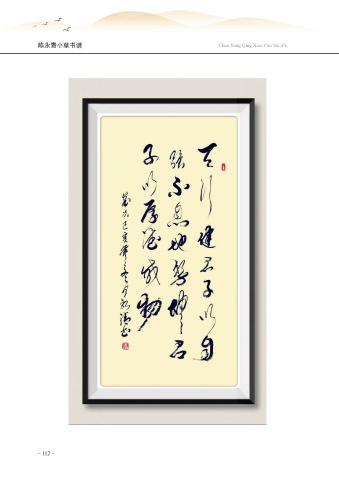 陈永青小草书谱
Chen Yong Qing Xiao Cao Shu Pu
天行健君子以自
强不息地势坤君
子以厚德载物
- 112 -